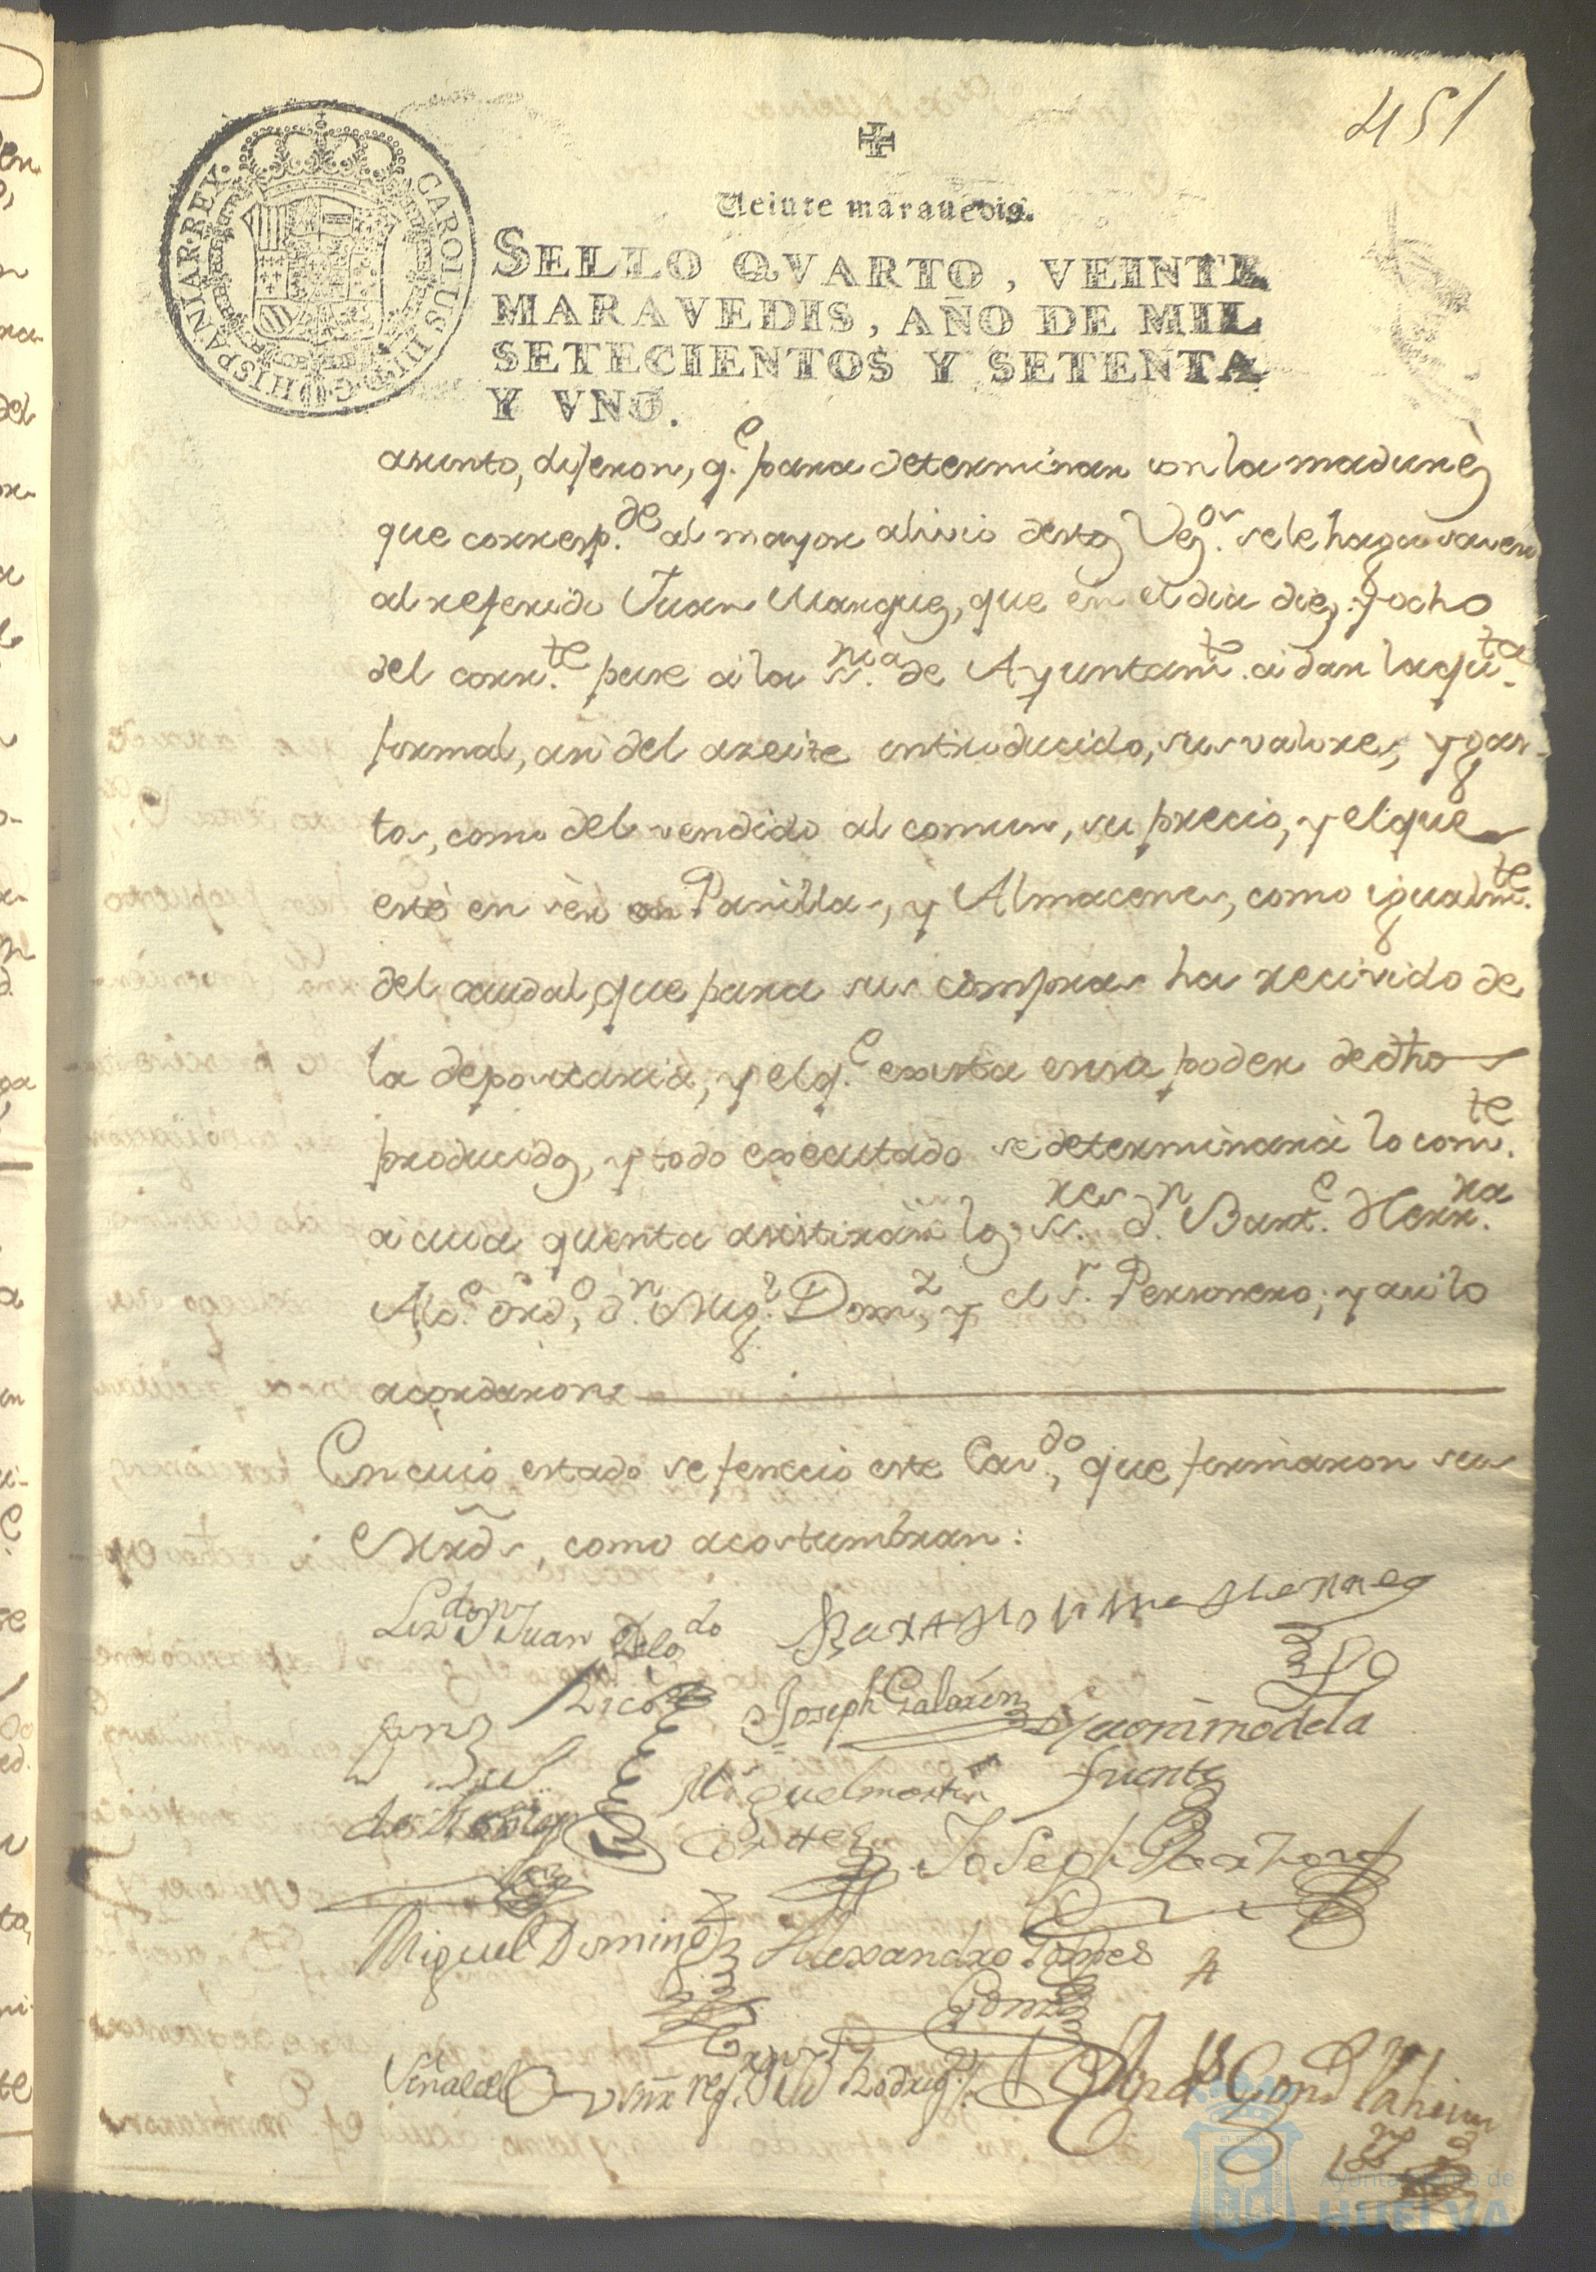 451
CAROLUS III D.G. HISPANIAR. REX.
Veinte marauedis.
SELLO QVARTO, VEINTE
MARAVEDIS, AÑO DE MIL
SETECIENTOS Y SETENTA
Y VNO.
asunto, dijeron, q.e para determinar con la madurèz
que corresp.de al mayor alivio destos Vez.os se le haga saver
al referido Juan Marquez, que en el dia diez y ocho
del corr.te pase a la ss.nia de Ayuntam.to a dar la qu.ta
formal, asi del azeite introducido, sus valores, y gas-
tos, como del vendido al comun, su precio, y el que
esté en sèr en Panillas, y Almacenes, como igualm.te
del caudal, que para sus compras ha recivido de
la depositaria, y el q.e exista en su poder de dho
producido, y todo executado se determinarà lo com.te
a cuia quenta asistiràn los ss.res d.n Bart.e Herr.ra
Alc.e ord.o, d.n Mig.l Dom.z, y el s.r Personero; y asi lo
acordaron
En cuio estado se feneció este Cav.do, que firmaron sus
Mrds, como acostumbran:
Liz.do d.n Juan Delg.do
Rico
Bartholome Herrera
Joseph Galarin
Geronimo de la
fuente
Miguel martin
Cortes
Joseph Barhona
Miguel Doming.z
Alexandro Lopes
Gomz
Señal de
reg.r
Rodrig.z
And.s Gonz
Ayuntamiento de
HUELVA